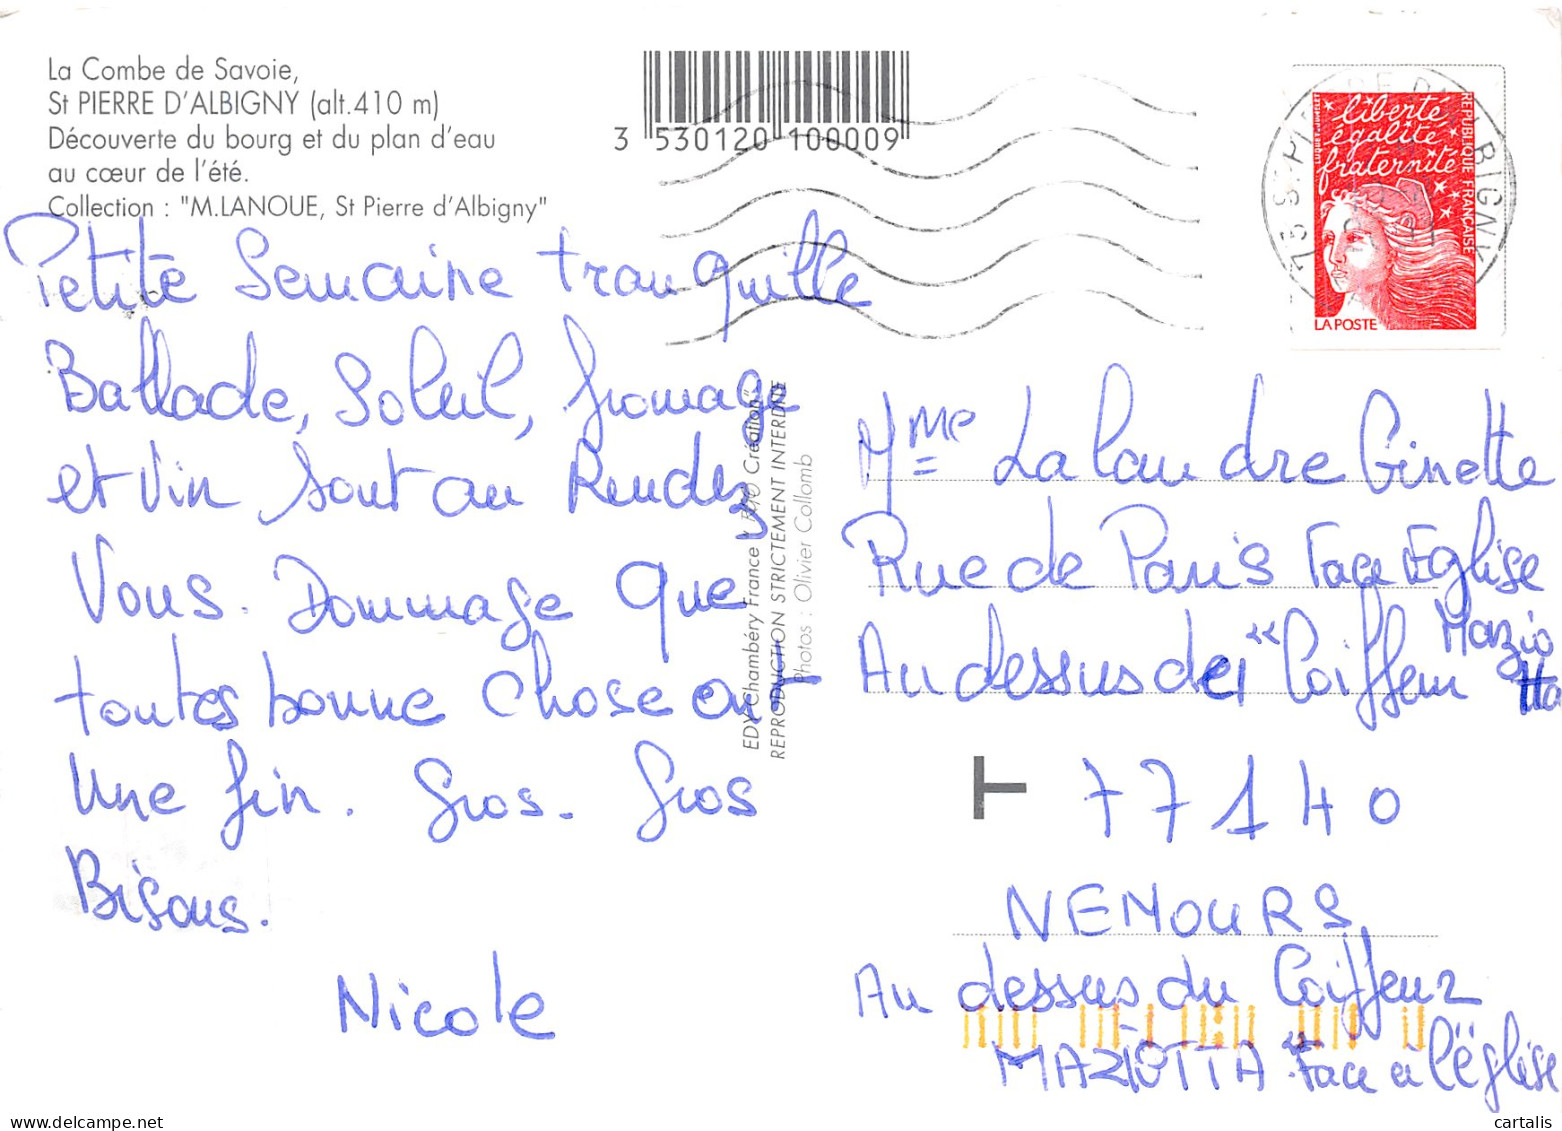 La Combe de Savoie,
St PIERRE D'ALBIGNY (alt.410 m)
Découverte du bourg et du plan d'eau
au cœur de l'été.
Collection : "M.LANOUE, St Pierre d'Albigny"
3 530120 100009
Petite Semaine tranquille
Ballade, Soleil, fromage
et Vin sont au Rendez
Vous. Dommage que
toutes bonne chose ont
Une fin. Gros. Gros
Bisous.
Nicole
EDY Chambéry France Création"
REPRODUCTION STRICTEMENT INTERDITE
Photos : Olivier Collomb
liberté
égalité
fraternité
RÉPUBLIQUE FRANÇAISE
LA POSTE
73 ST PIERRE D'ALBIGNY
Mme Lalaudre Ginette
Rue de Paris Face Eglise
Au dessus de "Coiffeur Mazio
tta
77140
NEMOURS
Au dessus du Coiffeur
MAZIOTTA "Face à l'église
delcampe.net
cartalis